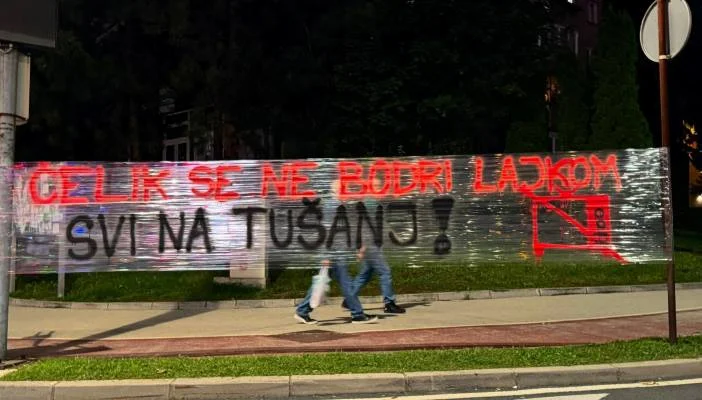 ČELIK SE NE BODRI LAJKOM
SVI NA TUŠANJ!